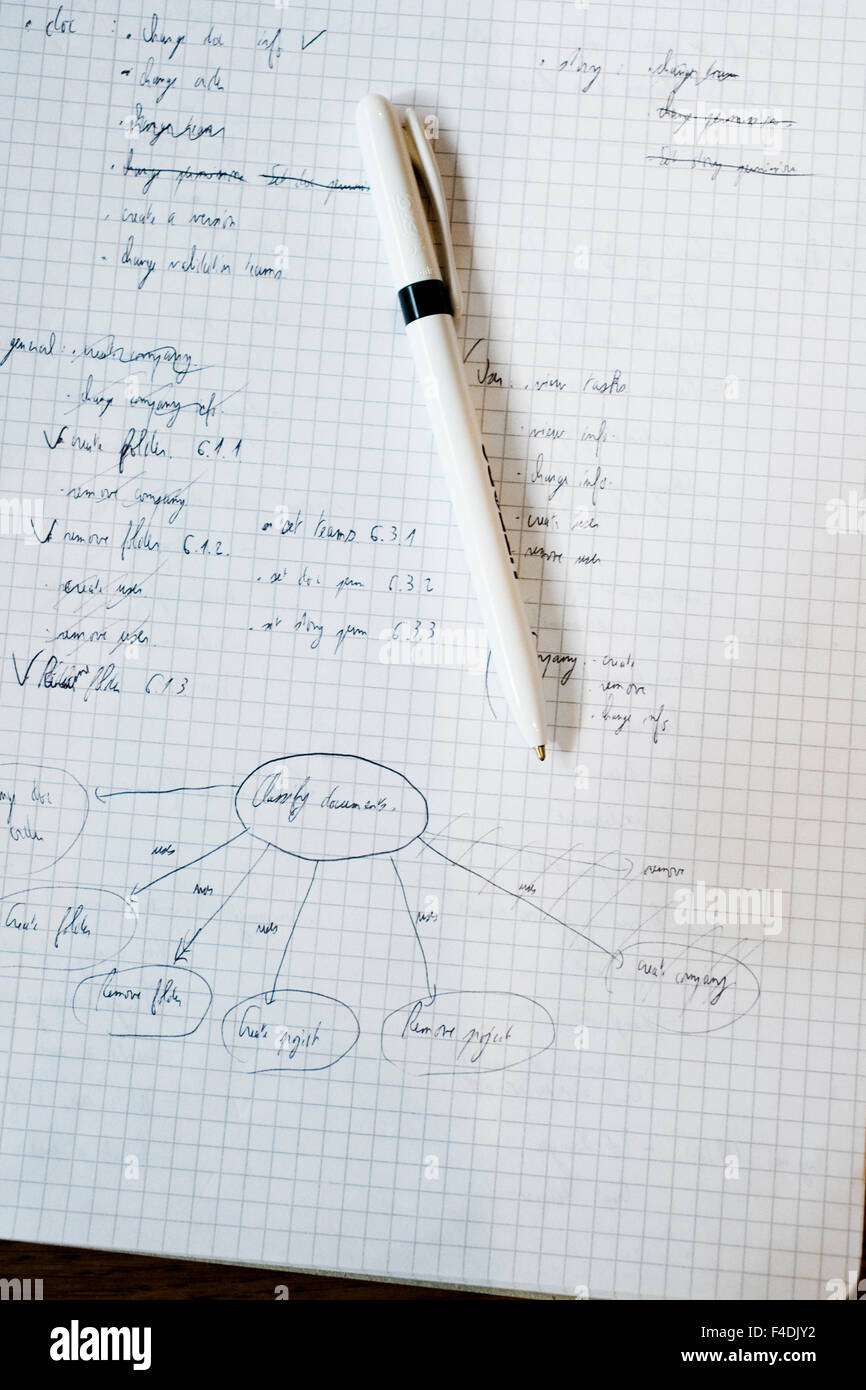 doc : . change doc info ✓
. change order
change team
. change permissions set doc perm
. create a version
. change validation teams
. story : . change team
change permissions
set story permissions
general : . create company
. change company info.
✓ create folder. 6.1.1
. remove company
✓ remove folder 6.1.2.
. create user
. remove user.
✓ folder 6.1.3
. set teams 6.3.1
. set doc perm 6.3.2
. set story perm 6.3.3
. view tasks
. view info.
. change info.
. create user
. remove user
. create
. remove
. change info
Classify documents.
doc
order
uses
uses
uses
uses
uses
remove
Create folder
Remove folder
Create project
Remove project
create company
alamy
Image ID: F4DJY2
www.alamy.com